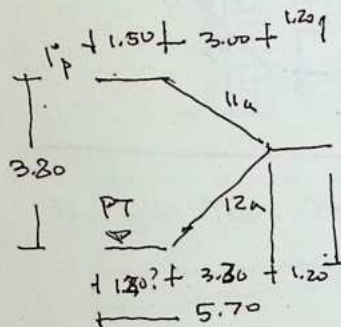 1.50 3.00 1.20
1ºp
11a
3.80
PT
12a
3.30 1.20
5.70